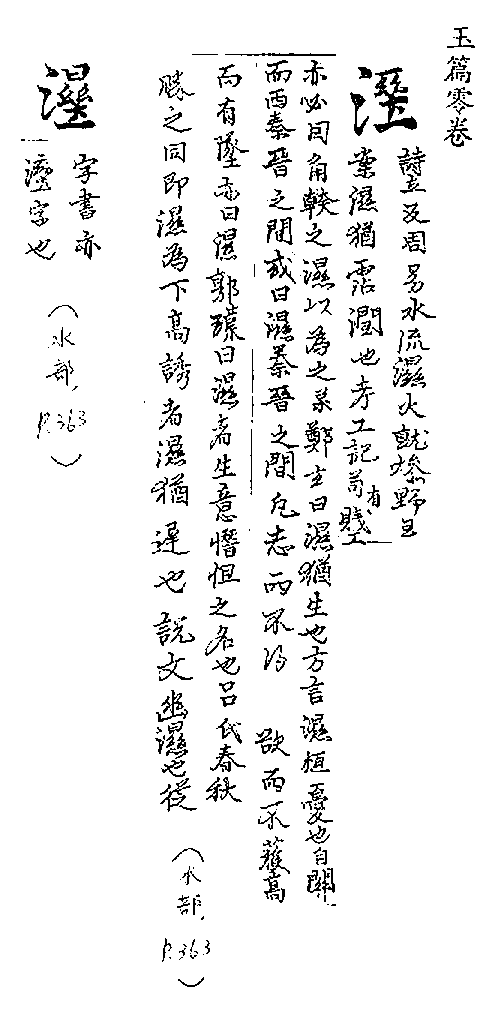 玉篇零卷
溼
詩立及周易水流濕火就燥野王
案濕猶霑潤也考工記苟有賤工
亦必因角幹之濕以為之柔鄭玄曰濕猶生也方言濕桓憂也自關
而西秦晉之間或曰濕秦晉之間凡志而不得 欲而不獲高
而有墜亦曰濕郭璞曰濕者生意憯怛之名也呂氏春秋
勝之同即濕為下高誘者濕猶遲也說文幽濕也從
(水部, P.363)
字書亦
溼字也
(水部, P.363)